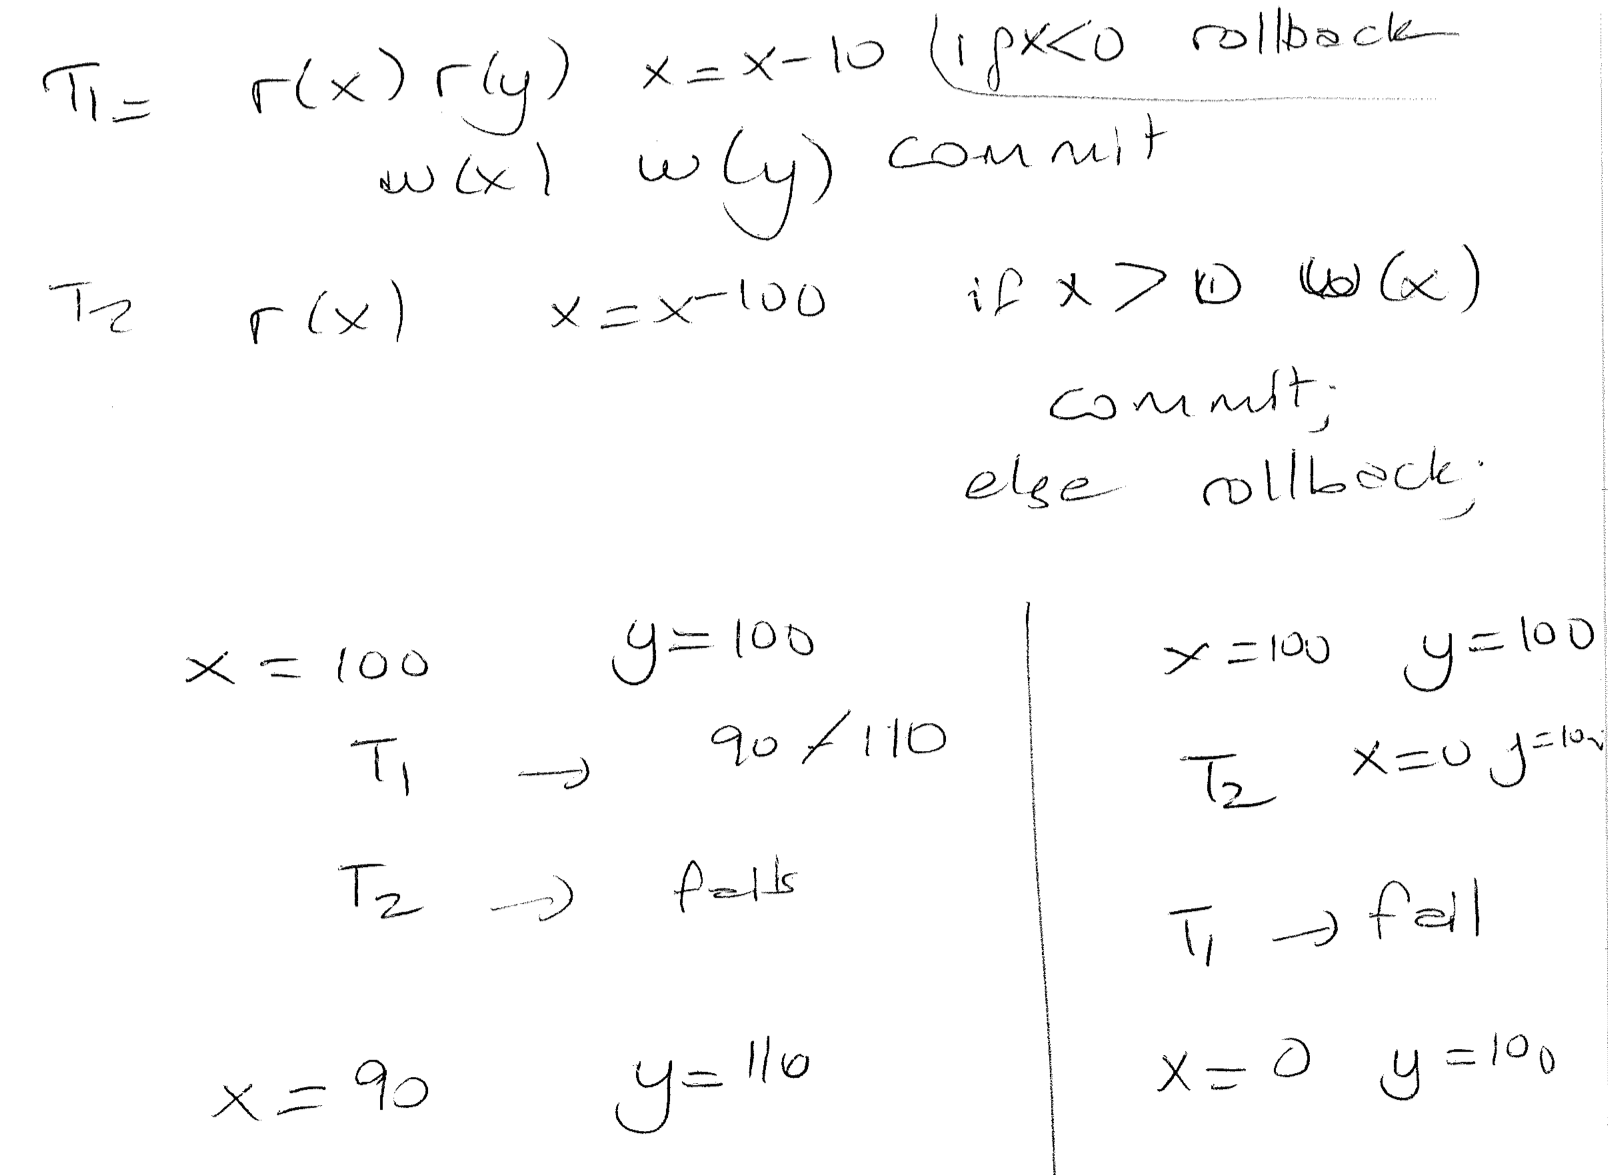 T1= r(x) r(y) x=x-10 (if x<0 rollback
w(x) w(y) commit
T2 r(x) x=x-100 if x>0 w(x)
commit;
else rollback;
x=100 y=100
T1 → 90/110
T2 → fails
x=90 y=110
x=100 y=100
T2 x=0 y=100
T1 → fail
x=0 y=100